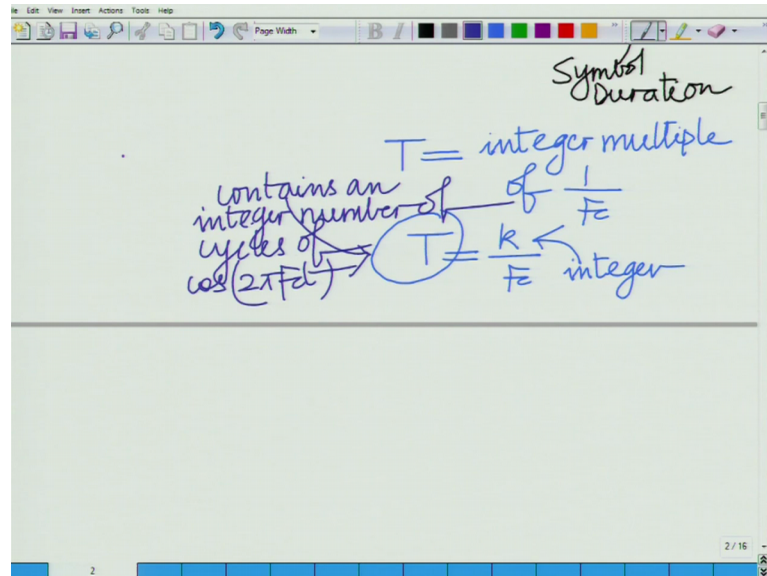 File Edit View Insert Actions Tools Help
Page Width
B I
Symbol
Duration
T = integer multiple
of 1/Fc
contains an
integer number of
cycles of
cos(2πFct)
T = k/Fc
integer
2 / 16
2